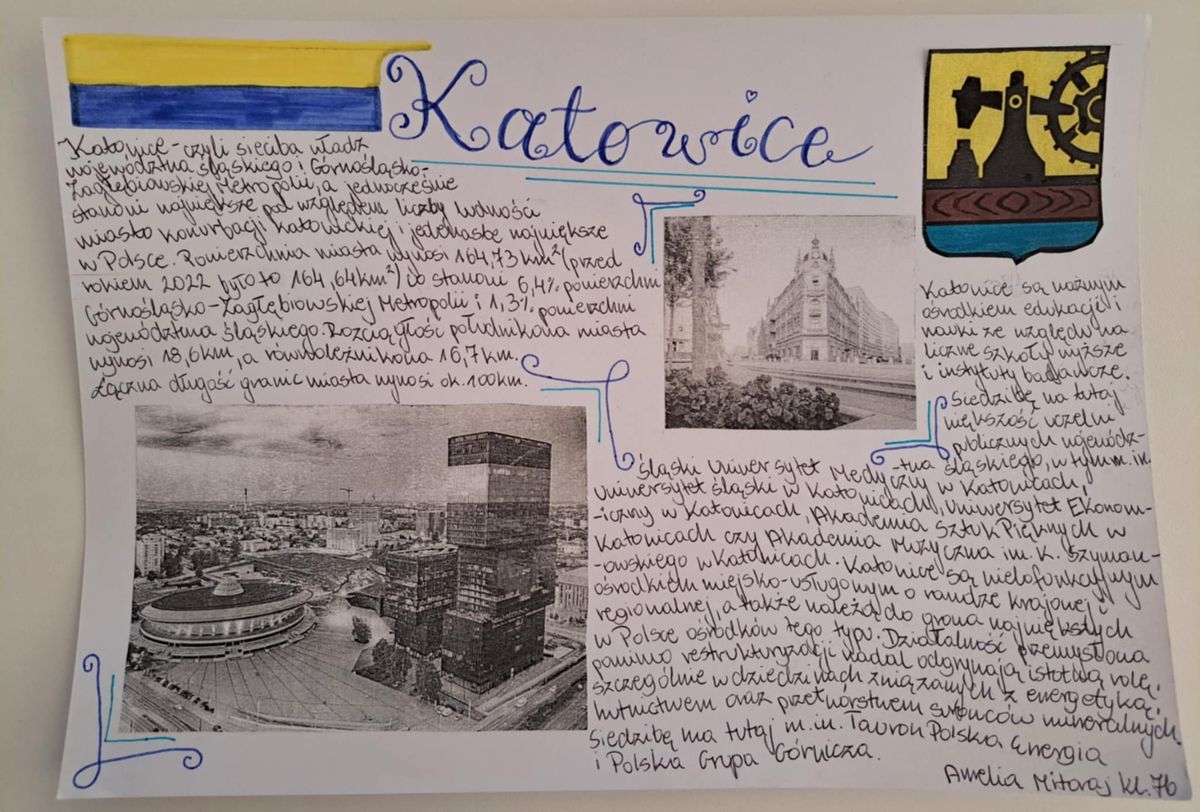 Katowice
Katowice - czyli siedziba władz
województwa śląskiego i Górnośląsko-
Zagłębiowskiej Metropolii, a jednocześnie
stanowi największe pod względem liczby ludności
miasto konurbacji katowickiej i jedenaste największe
w Polsce. Powierzchnia miasta wynosi 164,73 km² (przed
rokiem 2022 było to 164,64km²) co stanowi 6,4% powierzchni
Górnośląsko-Zagłębiowskiej Metropolii i 1,3% powierzchni
województwa śląskiego. Rozciągłość południkowa miasta
wynosi 18,6km, a równoleżnikowa 16,7km.
Łączna długość granic miasta wynosi ok. 100km.
Katowice są ważnym
ośrodkiem edukacji i
nauki ze względu na
liczne szkoły wyższe
i instytuty badawcze.
Siedzibę ma tutaj
większość uczelni
publicznych wojewódz-
-twa śląskiego, w tym m.in.
Śląski Uniwersytet Medyczny w Katowicach,
Uniwersytet Śląski w Katowicach, Uniwersytet Ekonom-
-iczny w Katowicach, Akademia Sztuk Pięknych w
Katowicach czy Akademia Muzyczna im. K. Szyman-
-owskiego w Katowicach. Katowice są wielofunkcyjnym
ośrodkiem miejsko-usługowym o randze krajowej i
regionalnej, a także należą do grona największych
w Polsce ośrodków tego typu. Działalność przemysłowa
pomimo restrukturyzacji nadal odgrywają istotną rolę,
szczególnie w dziedzinach związanych z energetyką,
hutnictwem oraz przetwórstwem surowców mineralnych.
Siedzibę ma tutaj m.in. Tauron Polska Energia
i Polska Grupa Górnicza.
Amelia Mitoraj kl. 7b